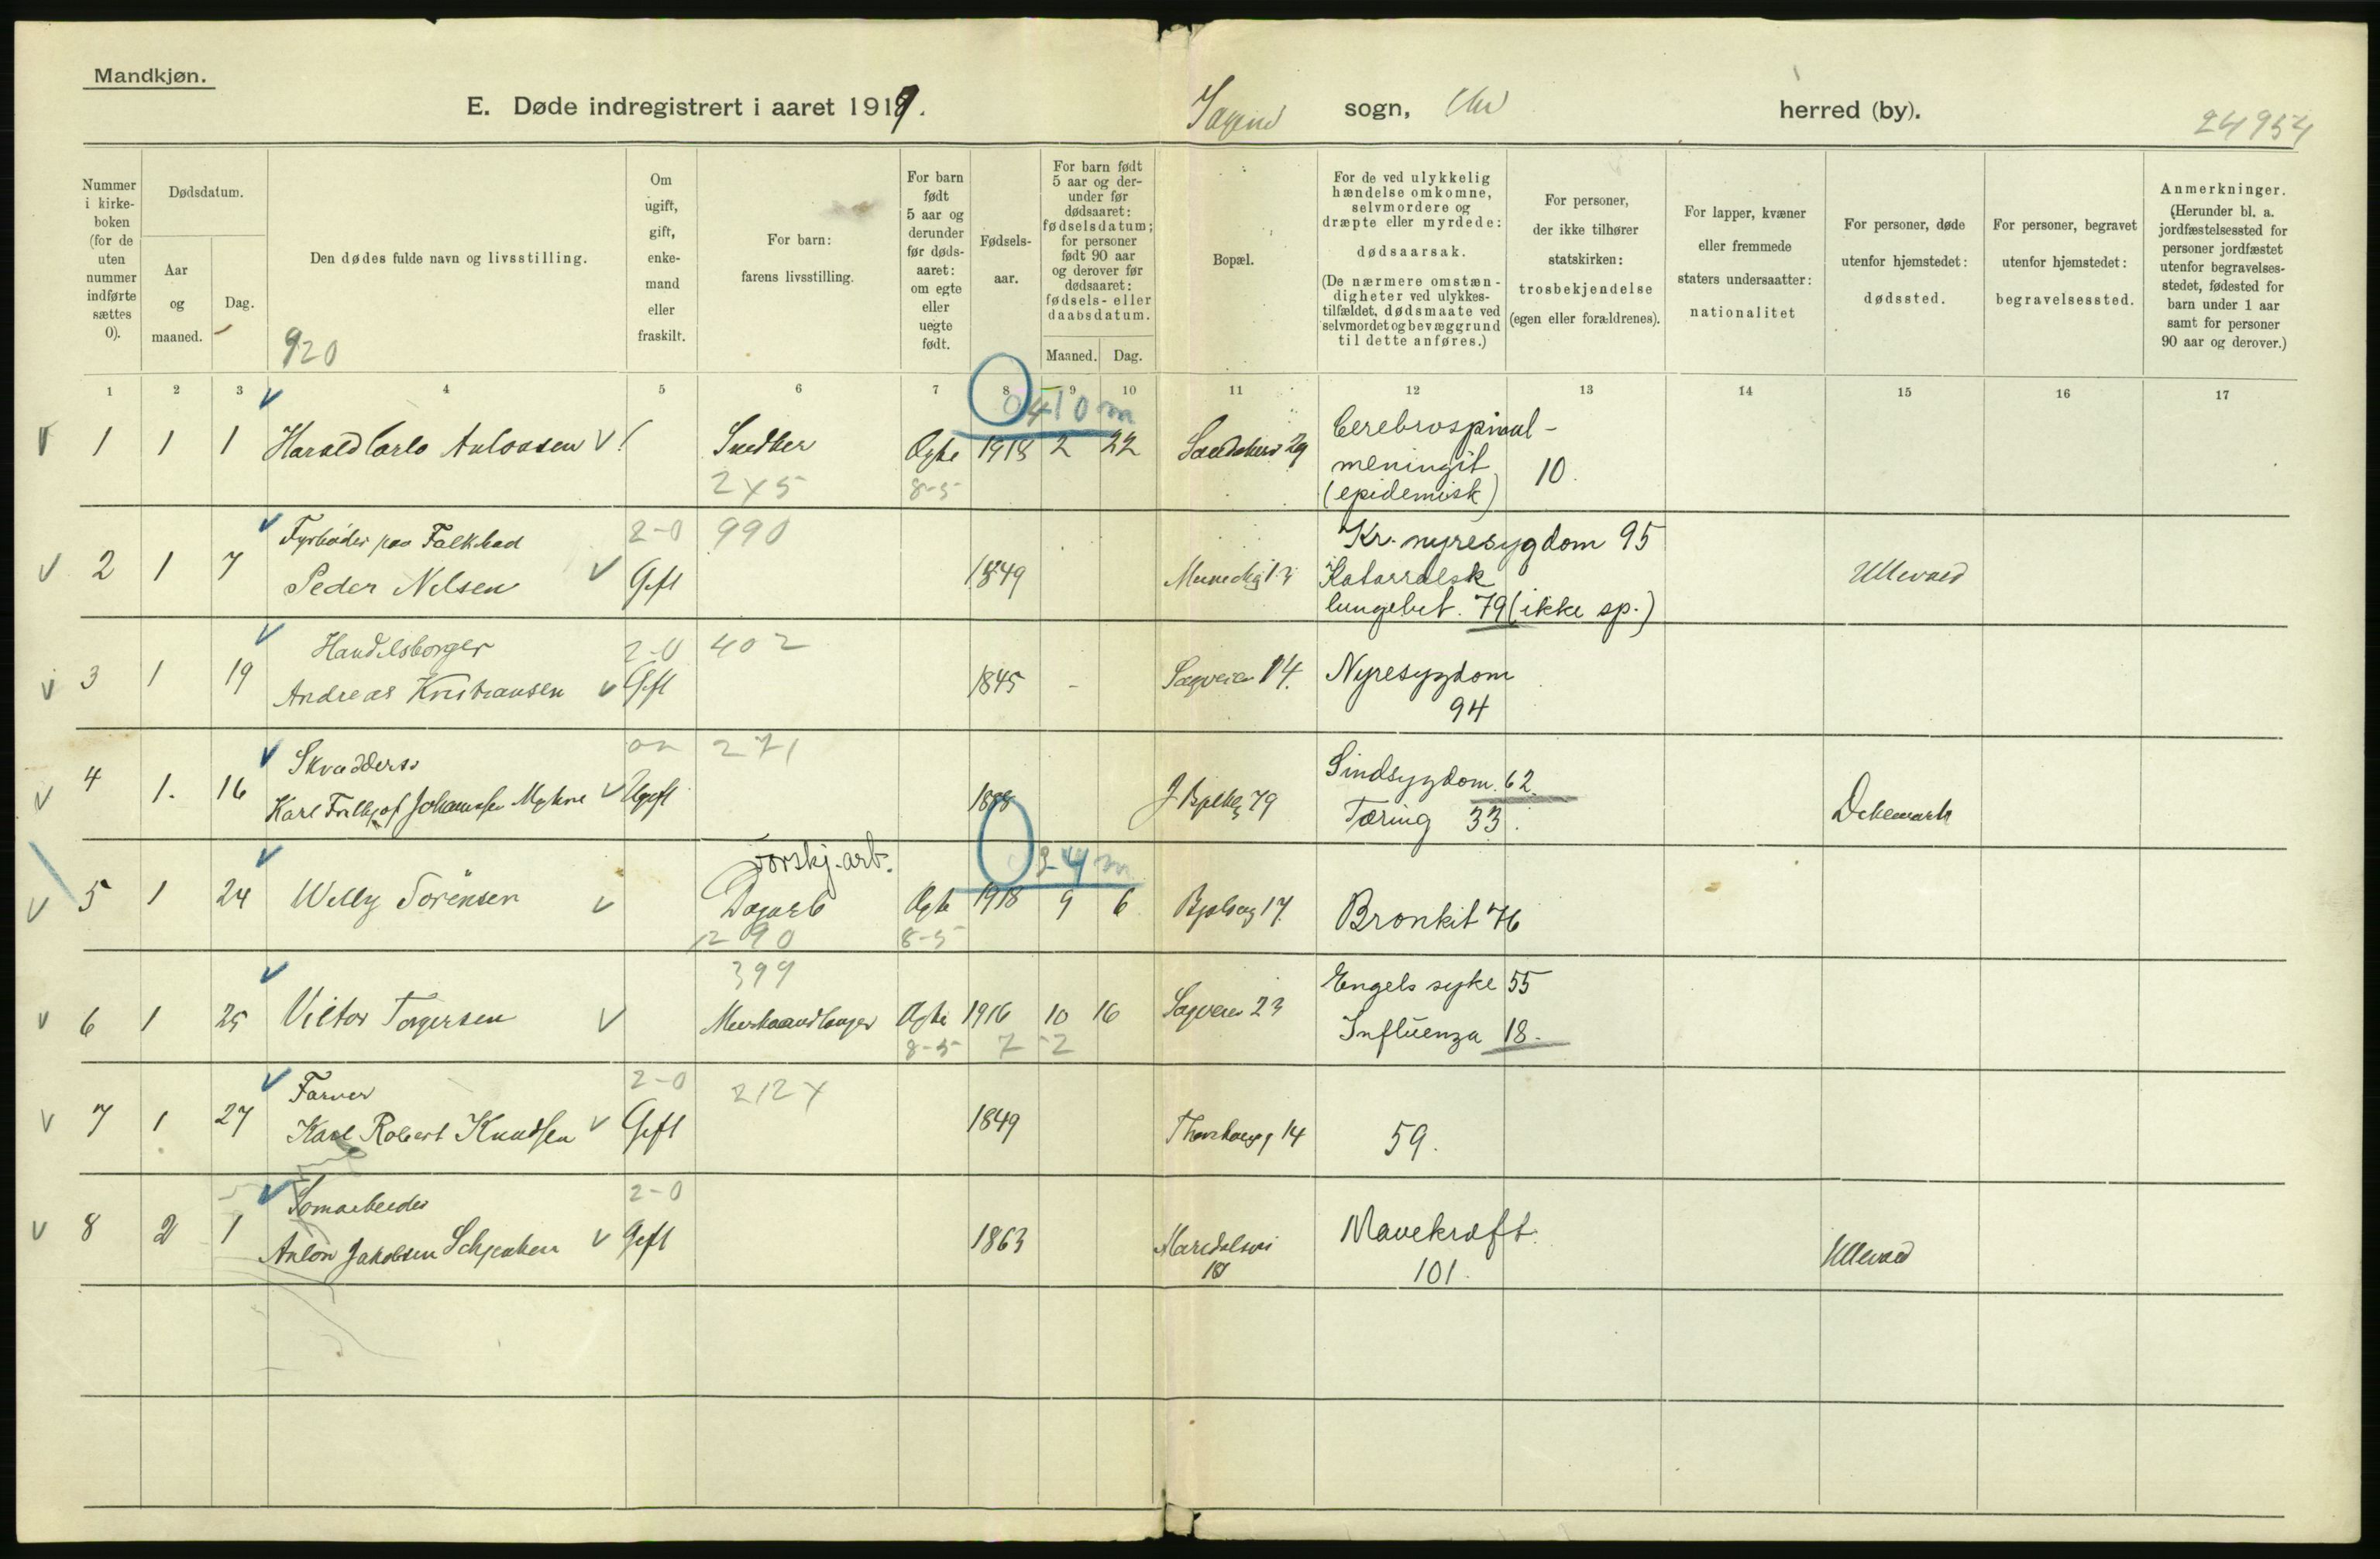 Mandkjøn.
E. Døde indregistrert i aaret 1919.
Sagene sogn, Chr herred (by).
24954
Nummer i kirke-boken (for de uten nummer indførte sættes 0).
Dødsdatum.
Aar og maaned.
Dag.
Den dødes fulde navn og livsstilling.
920
Om ugift, gift, enke-mand eller fraskilt.
For barn: farens livsstilling.
For barn født 5 aar og derunder før døds-aaret: om egte eller uegte født.
Fødsels-aar.
For barn født 5 aar og der-under før dødsaaret: fødselsdatum; for personer født 90 aar og derover før dødsaaret: fødsels- eller daabsdatum.
Maaned. Dag.
Bopæl.
For de ved ulykkelig hændelse omkomne, selvmordere og dræpte eller myrdede: dødsaarsak.
(De nærmere omstæn-digheter ved ulykkes-tilfældet, dødsmaate ved selvmordet og bevæggrund til dette anføres.)
For personer, der ikke tilhører statskirken: trosbekjendelse (egen eller forældrenes).
For lapper, kvæner eller fremmede staters undersaatter: nationalitet
For personer, døde utenfor hjemstedet: dødssted.
For personer, begravet utenfor hjemstedet: begravelsessted.
Anmerkninger. (Herunder bl. a. jordfæstelsessted for personer jordfæstet utenfor begravelses-stedet, fødested for barn under 1 aar samt for personer 90 aar og derover.)
1 2 3 4 5 6 7 8 9 10 11 12 13 14 15 16 17
0 10 m
1 1 1 Harald Carlo Antonsen Snedker Ægte 1918 2 22 29 Cerebrospinal-
meningit 10.
(epidemisk)
2x5 8-5
Fyrbøder paa Falk bad 2-0 990 Kr. nyresygdom 95
2 1 7 Peder Nilsen Gift 1849 13 Katarralsk Ullevaal
lungebet. 79 (ikke sp.)
Handelsborger 2-0 402
3 1 19 Andreas Kristiansen Gift 1845 - Sagveien 14. Nyresygdom
94
271
4 1. 16 Karl Johannsen Ugift 1888 79 Sindsygdom. 62.
Tæring 33. Dikemark
Vorskj.-arb. 4 m
5 1 24 Willy Sörensen Dagarb Ægte 1918 9 6 17 Bronkit 76
290 8-5
399 Engels syke 55
6 1 25 Victor Torgersen Murhaandlanger Ægte 1916 10 16 Sagveien 23 Influenza 18.
8-5 2-2
Farver 2-0 212x
7 1 27 Karl Robert Knudsen Gift 1849 14 59.
2-0
8 2 1 Anton Jakobsen Gift 1863 Maridalsvei Mavekræft. Ullevaal
101.